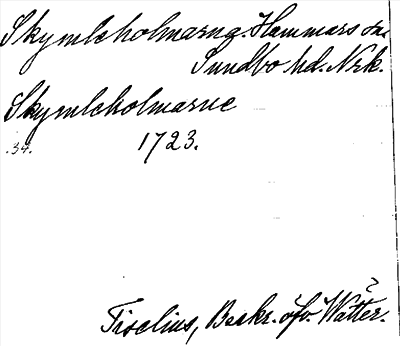 Skymleholmarna. Hammars sn.
Sundbo hd. Nrk.
Skymleholmarne
.34. 1723.
Tiselius, Beskr. öfv. Wätter.